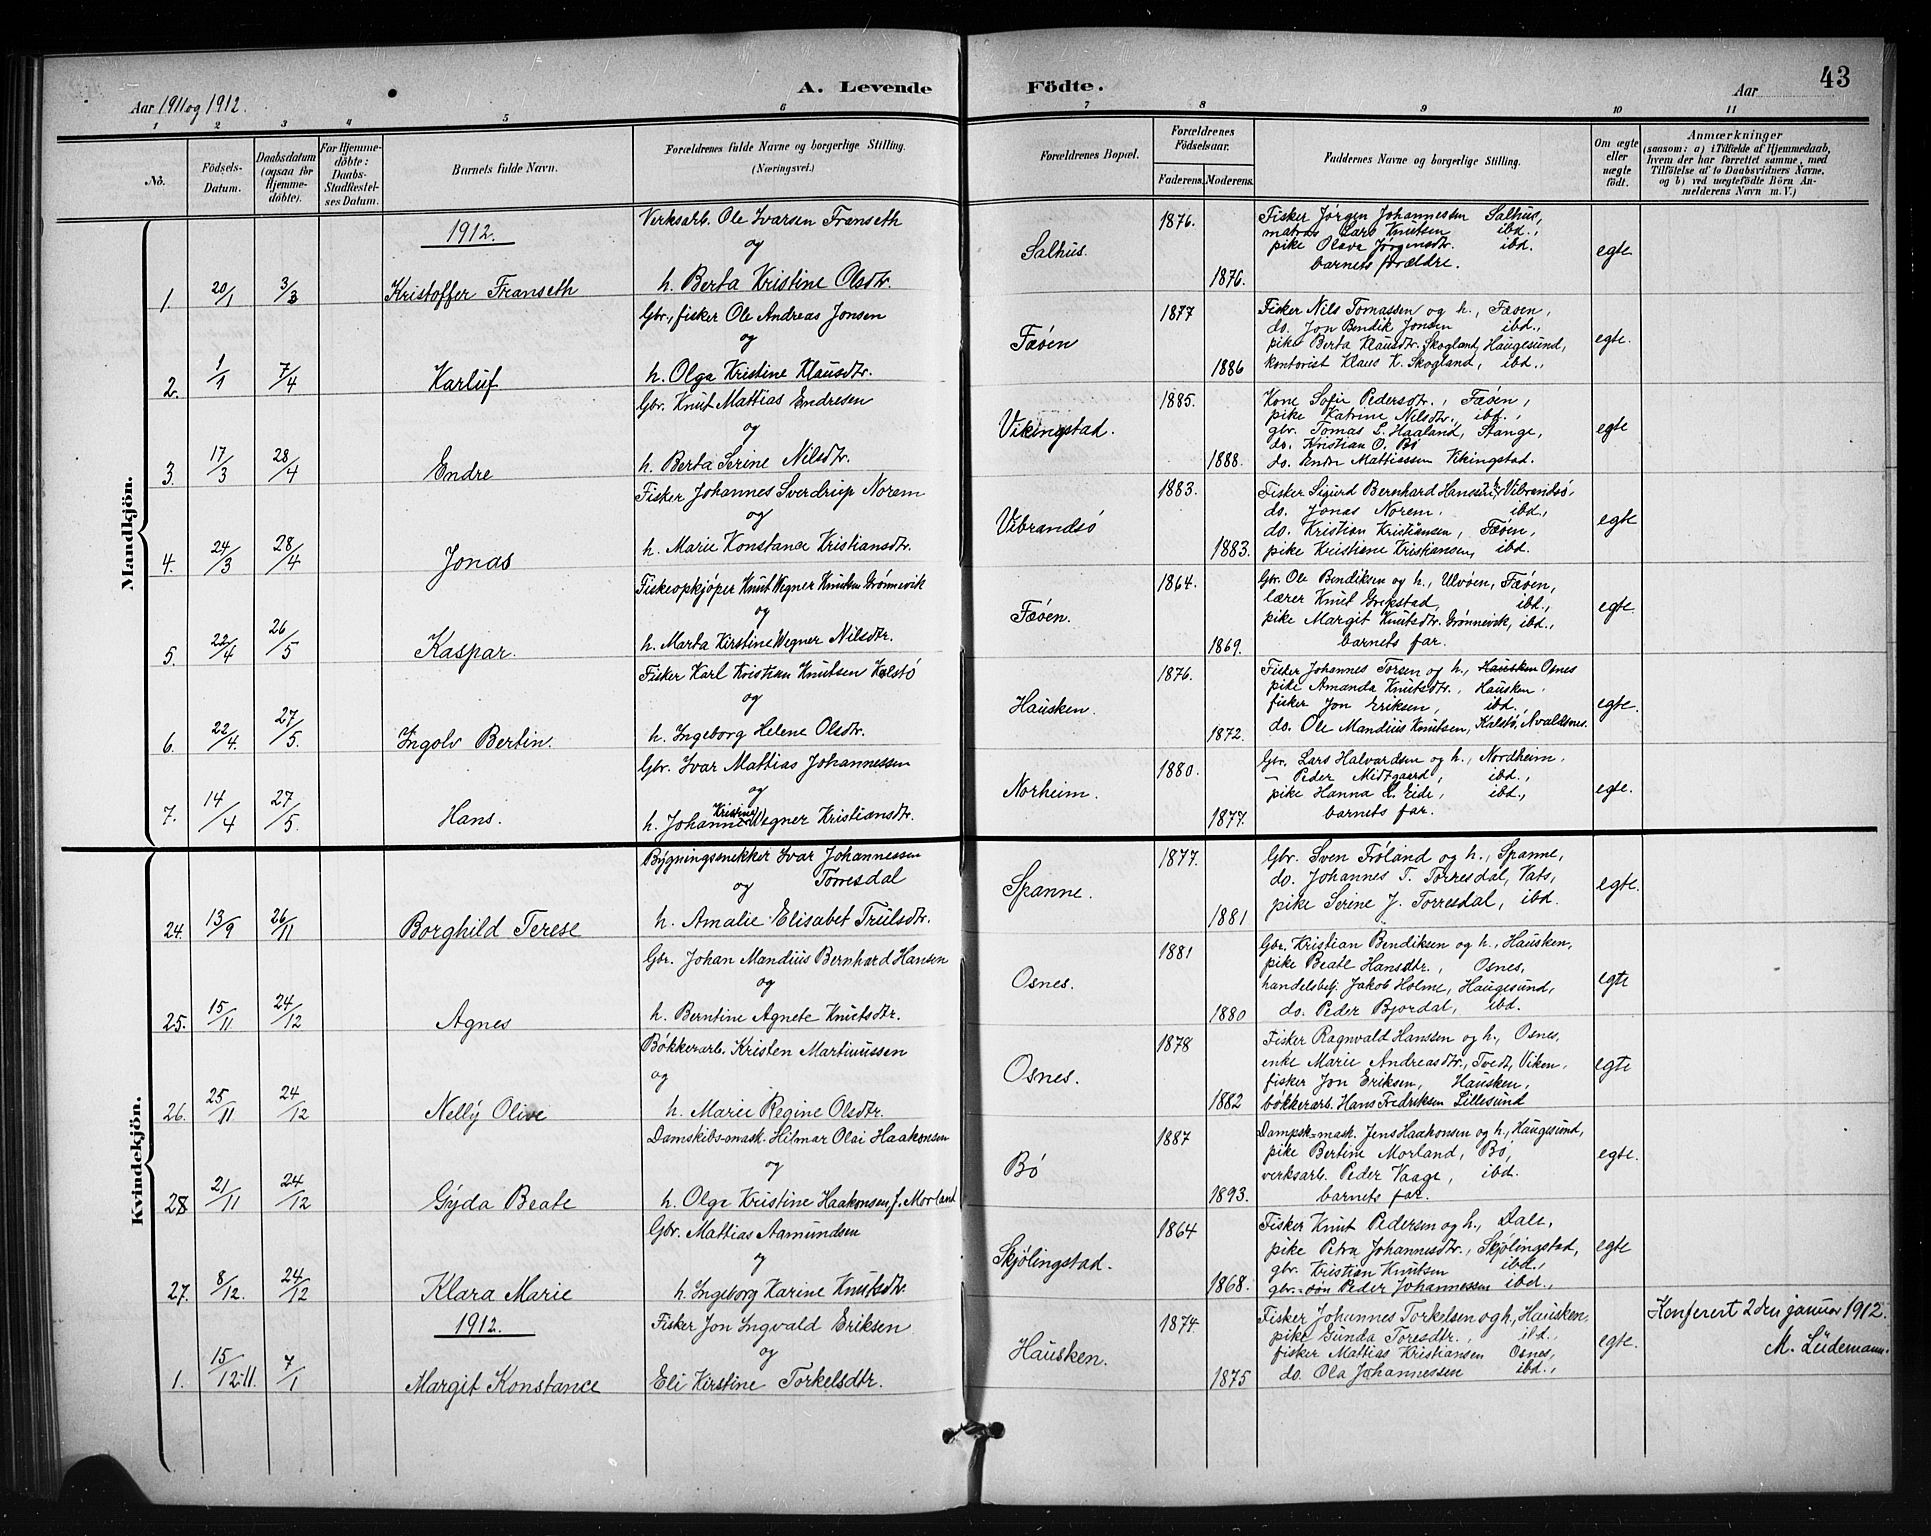 Aar 1911 og 1912.
A. Levende
Födte.
Aar
43
1 2 3 4 5 6 7 8 9 10 11
No.
Födsels-
Datum.
Daabsdatum
(ogsaa for
Hjemme-
döbte).
For Hjemme-
döbte:
Daabs-
Stadfæstel-
ses Datum.
Barnets fulde Navn.
Forældrenes fulde Navne og borgerlige Stilling.
(Næringsvei.)
Forældrenes Bopæl.
Forældrenes
Födselsaar.
Faderens.
Moderens.
Faddernes Navne og borgerlige Stilling.
Om ægte
eller
uægte
födt.
Anmærkninger
(saasom: a) i Tilfælde af Hjemmedaab,
hvem der har forrettet samme, med
Tilföielse af to Daabsvidners Navne,
og b) ved uægtefödte Börn An-
melderens Navn m. V.)
Mandkjön.
1912.
1. 20/1 3/3 Kristoffer Franseth
Verksarb. Ole Ivarsen Franseth
og
h. Berta Kristine Olsdtr.
Salhus.
1876.
1876.
Fisker Jørgen Johannessen Salhus,
matros Lars Knutsen ibd.,
pike Olava Jørgensdtr. ibd.
barnets forældre.
egte
2. 1/1 7/4 Karluf
Gbr., fisker Ole Andreas Jonsen
og
h. Olga Kristine Klausdtr.
Fæøen
1877
1886
Fisker Nils Tomassen og h., Fæøen,
do. Jon Bendik Jonsen ibd.,
pike Berta Klausdtr. Skogland, Haugesund,
kontorist Klaus K. Skogland, ibd.,
egte.
3. 17/3 28/4 Endre
Gbr. Knut Mattias Endresen
og
h. Berta Serine Nilsdtr.
Vikingstad.
1885.
1888.
Kone Sofie Pedersdtr., Fæøen,
pike Katrine Nilsdtr. ibd.,
gbr. Tomas L. Haaland, Stange,
do. Kristian O. Bø
do. Endre Mattiassen Vikingstad.
egte
4. 24/3 28/4 Jonas
Fisker Johannes Sverdrup Norem
og
h. Marie Konstance Kristiansdtr.
Vibrandsø
1883.
1883.
Fisker Sigurd Bernhard Hansen og h., Vibrandsø,
do. Jonas Norem, ibd.,
do. Kristian Kristiansen, Fæøen,
pike Kristiane Kristiansen, ibd.
egte
5. 22/4 26/5 Kaspar.
Fiskeopkjøper Knut Wegner Knutsen Grønnevik
og
h. Marta Kirstine Wegner Nilsdtr.
Fæøen.
1864.
1869.
Gbr. Ole Bendiksen og h., Ulvøen, Fæøen,
lærer Knut Grepstad, ibd.,
pike Margit Knutsdtr. Grønnevik, ibd.,
barnets far.
egte
6. 22/4. 27/5. Ingolv Bertin.
Fisker Karl Kristian Knutsen Kalstø
og
h. Ingeborg Helene Olsdtr.
Hausken.
1876.
1872.
Fisker Johannes Torsen og h., Hausken Osnes
pike Amanda Knutsdtr., Hausken,
fisker Jon Eriksen, ibd.
do. Ole Mandius Knutsen, Kalstø, Avaldsnes.
egte.
7. 14/4 27/5. Hans.
Gbr. Ivar Mattias Johannessen
og
Kristine
h. Johanne Wegner Kristiansdtr.
Norheim.
1880.
1877.
Gbr. Lars Halvardsen og h., Nordheim.
— Peder Midtgaard, ibd.,
pike Hanna K. Eide, ibd.,
barnets far.
egte.
Kvindekjön.
24. 13/9 26/11 Borghild Terese
Bygningssnekker Ivar Johannessen
og Torresdal
h. Amalie Elisabet Truilsdtr.
Spanne.
1877.
1881
Gbr. Sven Frøland og h., Spanne,
do. Johannes T. Torresdal, Vats,
pike Serine J. Torresdal, ibd.
egte.
25. 15/11 24/12 Agnes
Gbr. Johan Mandius Bernhard Hansen
og
h. Berntine Agnete Knutsdtr.
Osnes.
1881
1880
Gbr. Kristian Bendiksen og h., Hausken,
pike Beate Hansdtr., Osnes,
handelsbetj. Jakob Holme, Haugesund,
do. Peder Bjordal, ibd.
egte
26. 25/11 24/12 Nelly Olive
Bøkkerarb. Kristen Martinussen
og
h. Marie Regine Olsdtr.
Osnes.
1878
1882
Fisker Ragnvald Hanssen og h., Osnes,
enke Marie Andreasdtr., Tvedt, Viken,
fisker Jon Eriksen, Hausken,
bøkkerarb. Hans Fredriksen Lillesund
egte
28 21/11 24/12 Gyda Beate
Damskibsmask. Hilmar Olai Haakonsen
og
h. Olga Kristine Haakonsen f. Morland
Bø
1887
1893.
Dampsk=mask. Jens Haakonsen og h., Haugesund,
pike Bertine Morland, Bø,
verksarb. Peder Vaage, ibd.
barnets far.
egte.
27. 8/12. 24/12 Klara Marie
Gbr. Mattias Aamundsen
og
h. Ingeborg Karine Knutsdtr.
Skjølingstad.
1864
1868.
Fisker Knut Pedersen og h., Dale,
pike Petra Johannesdtr., Skjølingstad,
gbr. Kristian Knutsen ibd.,
gbr.-søn Peder Johannessen ibd.,
egte
1912.
1. 15/12.11. 7/1 Margit Konstance
Fisker Jon Ingvald Eriksen
og
Eli Kirstine Torkelsdtr.
Hausken.
1874.
1875
Fisker Johannes Torkelsen og h., Hausken,
pike Gunda Toresdtr., ibd.
fisker Mattias Kristiansen Osnes,
do. Ola Johannessen ibd.,
egte.
Konferert 2den januar 1912.
M. Lüdemann.